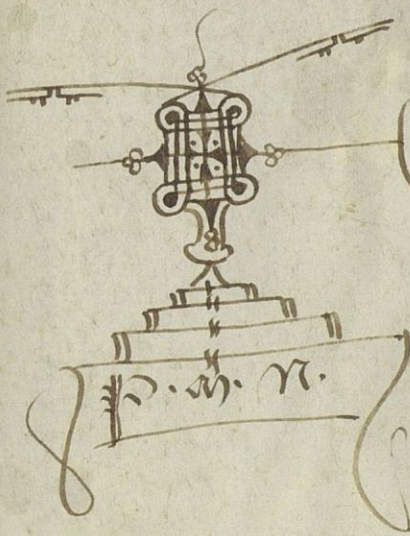 P. M. N.